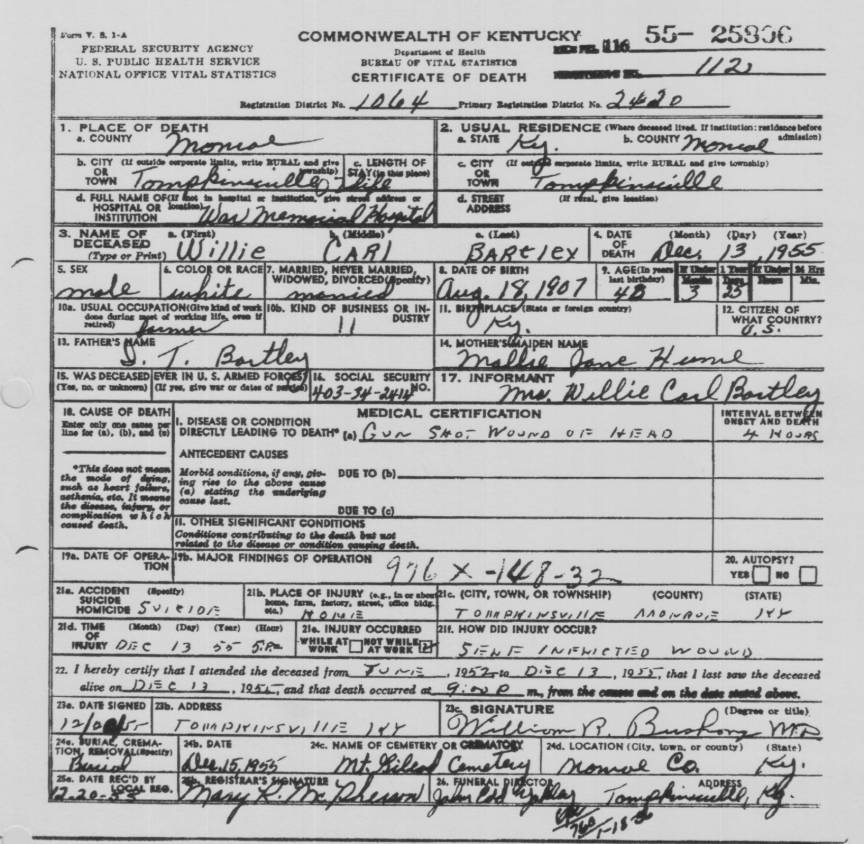 Form V. S. 1-A
FEDERAL SECURITY AGENCY
U. S. PUBLIC HEALTH SERVICE
NATIONAL OFFICE VITAL STATISTICS
COMMONWEALTH OF KENTUCKY
Department of Health
BUREAU OF VITAL STATISTICS
CERTIFICATE OF DEATH
116 55- 25806
112
Registration District No. 1064 Primary Registration District No. 2420
1. PLACE OF DEATH
a. COUNTY Monroe
2. USUAL RESIDENCE (Where deceased lived. If institution: residence before admission)
a. STATE Ky. b. COUNTY Monroe
b. CITY (If outside corporate limits, write RURAL and give township)
OR TOWN Tompkinsville
c. LENGTH OF STAY (in this place)
Life
c. CITY (If outside corporate limits, write RURAL and give township)
OR TOWN Tompkinsville
d. FULL NAME OF (If not in hospital or institution, give street address or location)
HOSPITAL OR INSTITUTION War Memorial Hospital
d. STREET ADDRESS (If rural, give location)
3. NAME OF DECEASED (Type or Print)
a. (First) b. (Middle) c. (Last)
Willie CARl BARTlEY
4. DATE OF DEATH (Month) (Day) (Year)
Dec. 13, 1955
5. SEX
male
6. COLOR OR RACE
white
7. MARRIED, NEVER MARRIED, WIDOWED, DIVORCED (Specify)
married
8. DATE OF BIRTH
Aug. 18, 1907
9. AGE (In years last birthday)
48
If Under 1 Year
Months Days
3 25
If Under 24 Hrs
Hours Min.
10a. USUAL OCCUPATION (Give kind of work done during most of working life, even if retired)
farmer
10b. KIND OF BUSINESS OR INDUSTRY
11
11. BIRTHPLACE (State or foreign country)
Ky.
12. CITIZEN OF WHAT COUNTRY?
U.S.
13. FATHER'S NAME
Bartley
14. MOTHER'S MAIDEN NAME
Mallie Jane Hume
15. WAS DECEASED EVER IN U. S. ARMED FORCES?
(Yes, no, or unknown) (If yes, give war or dates of service)
16. SOCIAL SECURITY NO.
403-34-2414
17. INFORMANT
Mrs. Willie Carl Bartley
18. CAUSE OF DEATH
Enter only one cause per line for (a), (b), and (c)
MEDICAL CERTIFICATION
INTERVAL BETWEEN ONSET AND DEATH
I. DISEASE OR CONDITION
DIRECTLY LEADING TO DEATH* (a) GUN SHOT WOUND OF HEAD
4 HOURS
*This does not mean the mode of dying, such as heart failure, asthenia, etc. It means the disease, injury, or complication which caused death.
ANTECEDENT CAUSES
Morbid conditions, if any, giving rise to the above cause (a) stating the underlying cause last.
DUE TO (b)
DUE TO (c)
II. OTHER SIGNIFICANT CONDITIONS
Conditions contributing to the death but not related to the disease or condition causing death.
19a. DATE OF OPERATION
19b. MAJOR FINDINGS OF OPERATION
976 X -148-32
20. AUTOPSY?
YES NO
21a. ACCIDENT SUICIDE HOMICIDE (Specify)
SUICIDE
21b. PLACE OF INJURY (e.g., in or about home, farm, factory, street, office bldg. etc.)
HOME
21c. (CITY, TOWN, OR TOWNSHIP) (COUNTY) (STATE)
TOMPKINSVILLE MONROE KY
21d. TIME OF INJURY (Month) (Day) (Year) (Hour)
DEC 13 55 5 P.m
21e. INJURY OCCURRED
WHILE AT WORK NOT WHILE AT WORK
21f. HOW DID INJURY OCCUR?
SELF INFLICTED WOUND
22. I hereby certify that I attended the deceased from JUNE, 1952 to DEC 13, 1955, that I last saw the deceased
alive on DEC 13, 1955, and that death occurred at 9:00 P m., from the causes and on the date stated above.
23a. DATE SIGNED
23b. ADDRESS
TOMPKINSVILLE KY
23c. SIGNATURE (Degree or title)
William R. Bushong MD
24a. BURIAL, CREMATION, REMOVAL (Specify)
Burial
24b. DATE
Dec. 15, 1955
24c. NAME OF CEMETERY OR CREMATORY
Mt. Gilead Cemetery
24d. LOCATION (City, town, or county) (State)
Monroe Co. Ky.
25a. DATE REC'D BY LOCAL REG.
12-20-55
25b. REGISTRAR'S SIGNATURE
Mary R. McPherson
26. FUNERAL DIRECTOR ADDRESS
Tompkinsville, Ky.